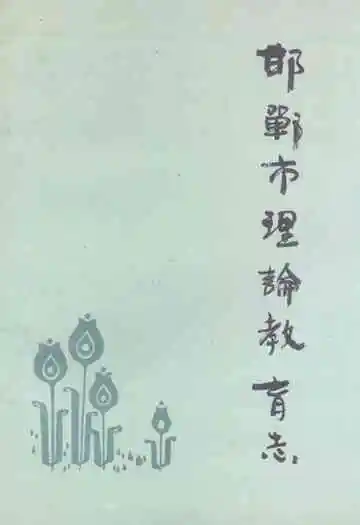 邯鄲市理論教育志